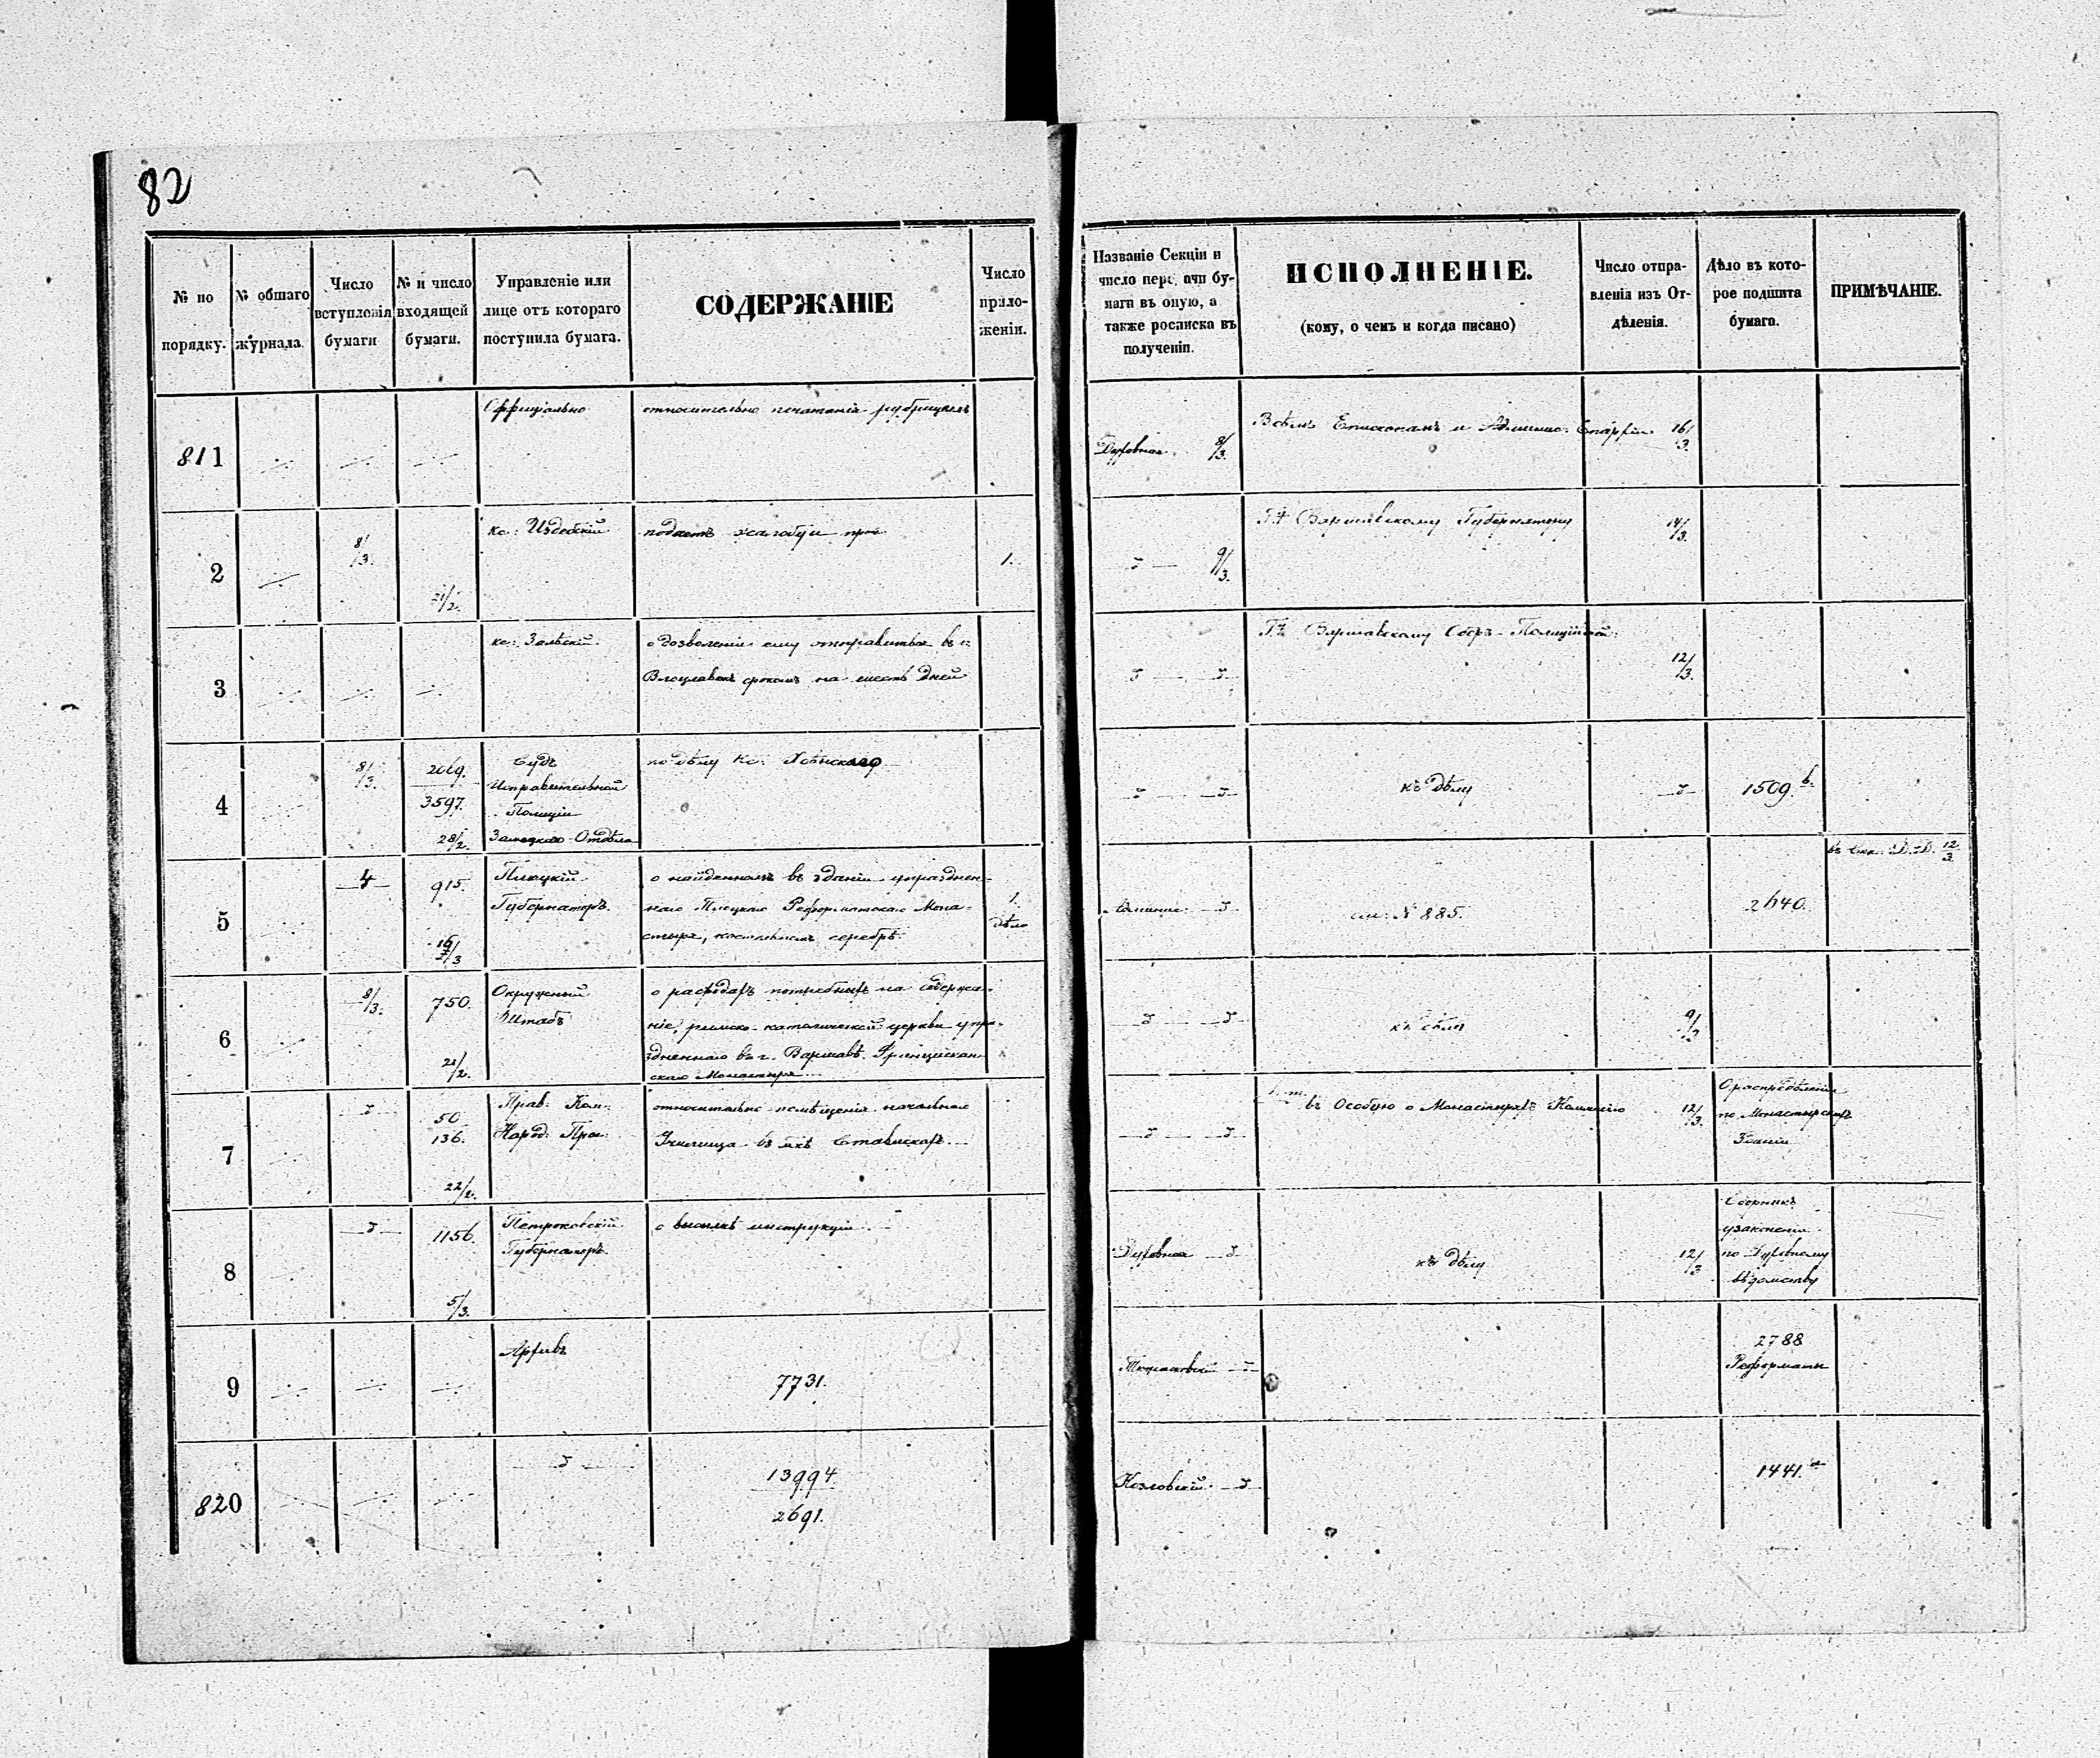 82
№ по порядку.
№ общаго журнала.
Число вступленія бумаги
№ и число входящей бумаги.
Управленіе или лице отъ котораго поступила бумага.
СОДЕРЖАНІЕ
Число приложеній.
Названіе Секціи и число передачи бумаги въ оную, а также росписка въ полученіи.
ИСПОЛНЕНІЕ.
(кому, о чемъ и когда писано)
Число отправленія изъ Отдѣленія.
Дѣло въ которое подшита бумага.
ПРИМѢЧАНІЕ.
811
Оффиціально
относительно печатанія рубрицелъ
Духовная 8/3.
Всѣмъ Епископамъ и Админис. Епархіи 16/3.
2
8/3.
21/2.
кс: Издебскій
подаетъ жалобу и
1.
9/3.
Варшавскому Губернатору
14/3.
3
кс: Залѣскій
о дозволеніи ему отправиться въ г.
Влоцлавекъ срокомъ на шесть дней
Варшавскому Оберъ-Полицій:
12/3.
4
8/3.
2069.
3597.
28/2.
Судъ
Исправительной
Полиціи
Отдѣла
по дѣлу Кс:
къ дѣлу
1509.
5
915.
Плоцкій
Губернаторъ.
о найденномъ въ зданіи упразднен-
наго Плоцкаго Реформатскаго Мона-
стыря, костельномъ серебрѣ.
1.
дѣло
Админис:
см: № 885.
2640.
12/3.
6
8/3.
750.
21/2.
Окружный
Штабъ
о расходахъ потребныхъ на содержа-
ніе римско-католической церкви упра-
здненнаго въ г. Варшавѣ Францискан-
скаго Монастыря
9/3
7
50
136.
22/2.
Прав: Ком:
Народ: Прос:
относительно помѣщенія начальнаго
Училища въ Ставискахъ
въ Особую о Монастыряхъ Коммисію
12/3.
О распредѣленіи
по Монастырскихъ
Зданіи
8
1156.
5/3.
Петроковскій
Губернаторъ.
о высылкѣ инструкціи.
Духовная
къ дѣлу
12/3
Сборникъ
узаконеній
по Духовному
вѣдомству
9
Архивъ
7731.
2788
Реформаты
820
13994
2691.
Козловскій
1441.